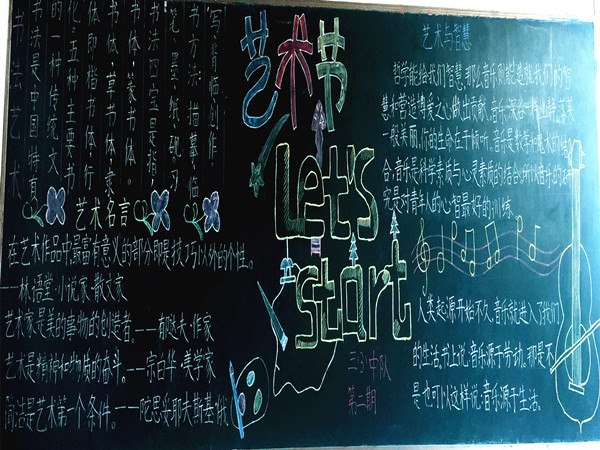 书法艺术
书法是中国特有
的一种传统文
化,五种主要书
体即楷书体,行
书体,草书体,隶
书体,篆书体。
书法四宝是指:
笔、墨、纸、砚。习
书方法:描摹、临
写、背临、创作。
艺术名言
在艺术作品中,最富有意义的部分即是技巧以外的个性。
——林语堂·小说家、散文家
艺术家是美的事物的创造者。——郁达夫·作家
艺术是精神和物质的奋斗。——宗白华·美学家
简洁是艺术第一个条件。——陀思妥耶夫斯基·俄
艺术节
Let's
start
三(3)中队
第二期
艺术与智慧
哲学能给我们智慧,那么音乐则能意
慧和营造博爱之心做出贡献。音乐深谷
一般美丽,你的生命在于倾听。音乐是数学和魔术的结
合,音乐是科学素质与心灵素质的结合,所以音乐的
究是对青年人的心智最好的训练。
人类起源开始不久,音乐就进入了我们
的生活,书上说:音乐源于劳动。那是不
是也可以这样说:音乐源于生活。